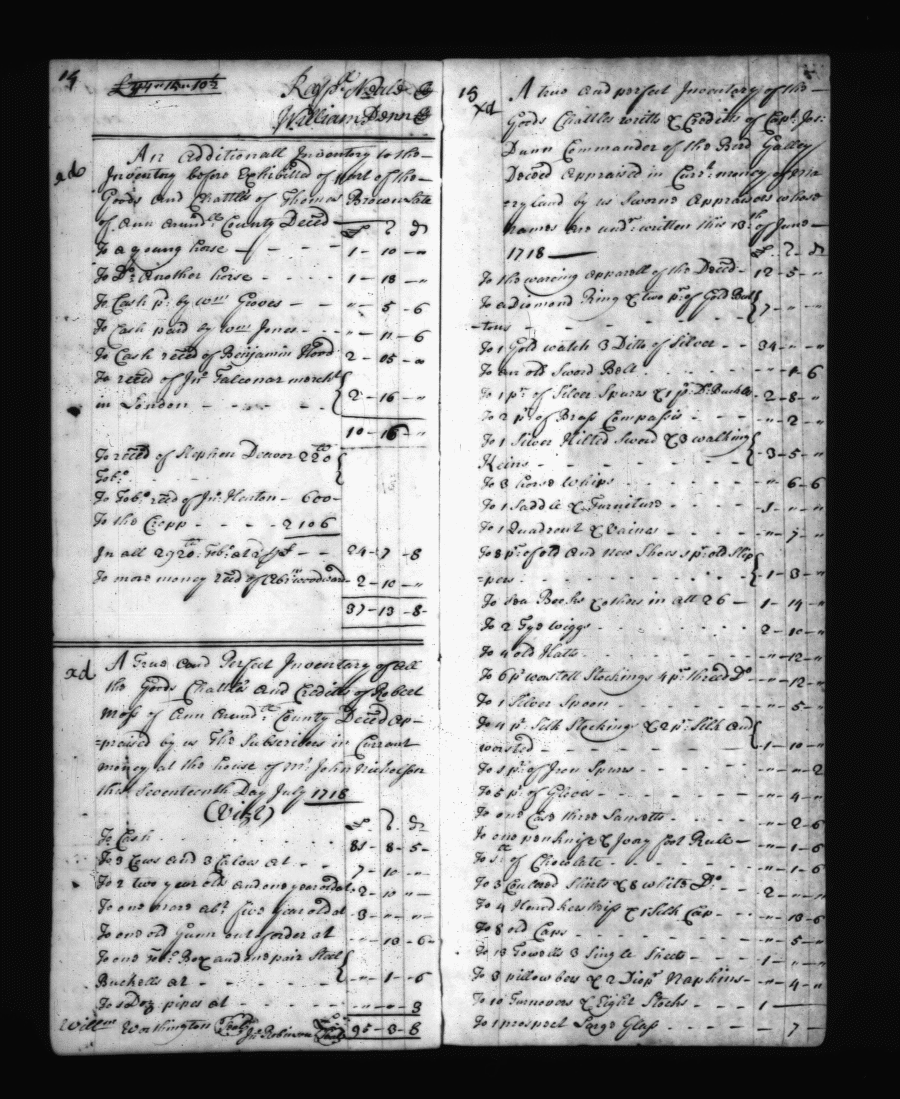 14
£44 " 15 " 10½ Raphl. Neale
William Denn
An Additionall Inventory to the
ad Inventory before Exhibitted of part of the
Goods and Chattles of Thomas Brown late
of Ann Arundll County Deced £ S D
To a young horse 1 - 10 - "
To Do. Another horse 1 - 18 - "
To Cash pd. by Wm. " - 5 - 6
To Cash paid by Wm. Jones " - 11 - 6
To Cash reced of Benjamin Hood 2 - 05 - "
To reced of Jno. Falconar mercht.
in London 2 - 16 - "
10 - 16 - "
To reced of Stephen 220
Tobo.
To Tobo. reced of Jno. 600
To the Cropp 2106
In all 2920 Tobo. at 24 - 7 - 8
To more money reced of Woodward 2 - 10 - "
37 - 13 - 8
ad A True and Perfect Inventory of all
the Goods Chattles and Credits of Robert
Moss of Ann Arundll. County Deced ap-
=praised by us The Subscribers in Currant
money at the house of Mr. John Nicholson
this Seventeenth Day July 1718
(Vizt) £ S D
To Cash 81 - 8 - 5
To 3 Cows and 3 Calves at 7 - 10 - "
To 2 two year olds and one year old at 2 - 10 - "
To one mare abt. five years old at 3 - " - "
To one old gunn out of order at " - 10 - 6
To one Tobo. Box and one pair Steel
Buckells at " - 1 - 6
To Doz pipes at " - 0 - 3
Willm. Worthington Jno. Robinson 95 - 3 - 8
15
xd A true and perfect Inventory of the
Goods Chattles writts & Credits of Capt. Jos:
Dunn Commander of the Bird Galley
Deced appraised in Currt. money of Ma
=ryland by us Sworn Appraisors whose
names are undr. written this 13th. of June
1718 £ S D
To the waring apparell of the Deced 12 - 5 - "
To a Diomond Ring & two pr. of Gold But
=tons 7 - " - "
To 1 Gold watch 3 Ditto of Silver 34 - " - "
To an old Sword Belt " - 1 - 6
To 1 pr. of Silver Spurrs & 1 pr. Do. Buckles 2 - 8 - "
To 2 pr. of Brass Compasses " - 2 - "
To 1 Silver Hilted Sword & 3 walking
Keins 3 - 5 - "
To 3 horse whips " - 6 - 6
To 1 Saddle & Furniture 1 - " - "
To 1 Quadrent & Vaines " - 7 - "
To 8 pr. of old and new Shoes 1 pr. old Slip
=pers 1 - 3 - "
To Sea Books & others in all 26 1 - 14 - "
To 2 Tye wiggs 2 - 10 - "
To 4 old Hatts " - 12 - "
To 6 pr. worsted Stockings 4 pr. thread Do. " - 12 - "
To 1 Silver Spoon " - 5 - "
To 4 pr. Silk Stockings & 2 pr. Silk and
worsted 1 - 10 - "
To 1 pr. of Iron Spurs " - " - 2
To 5 pr. of Gloves " - 4 - "
To one Case three " - 2 - 6
To one penknife & Ivory foot Rule " - 1 - 6
To of Chocolate " - 1 - 6
To 3 Coulered Shirts & 8 white Do. 2 - " - "
To 4 Handkerchiefs & 1 Silk Cap " - 10 - 6
To 8 old Caps " - 5 - "
To 13 Towells 3 Single Sheets 1 - " - "
To 3 pillow bers & 2 Diapr. Napkins " - 4 - "
To 10 Turnovers & Eight Stocks 1 -
To 1 prospect Large Glass - 7 -